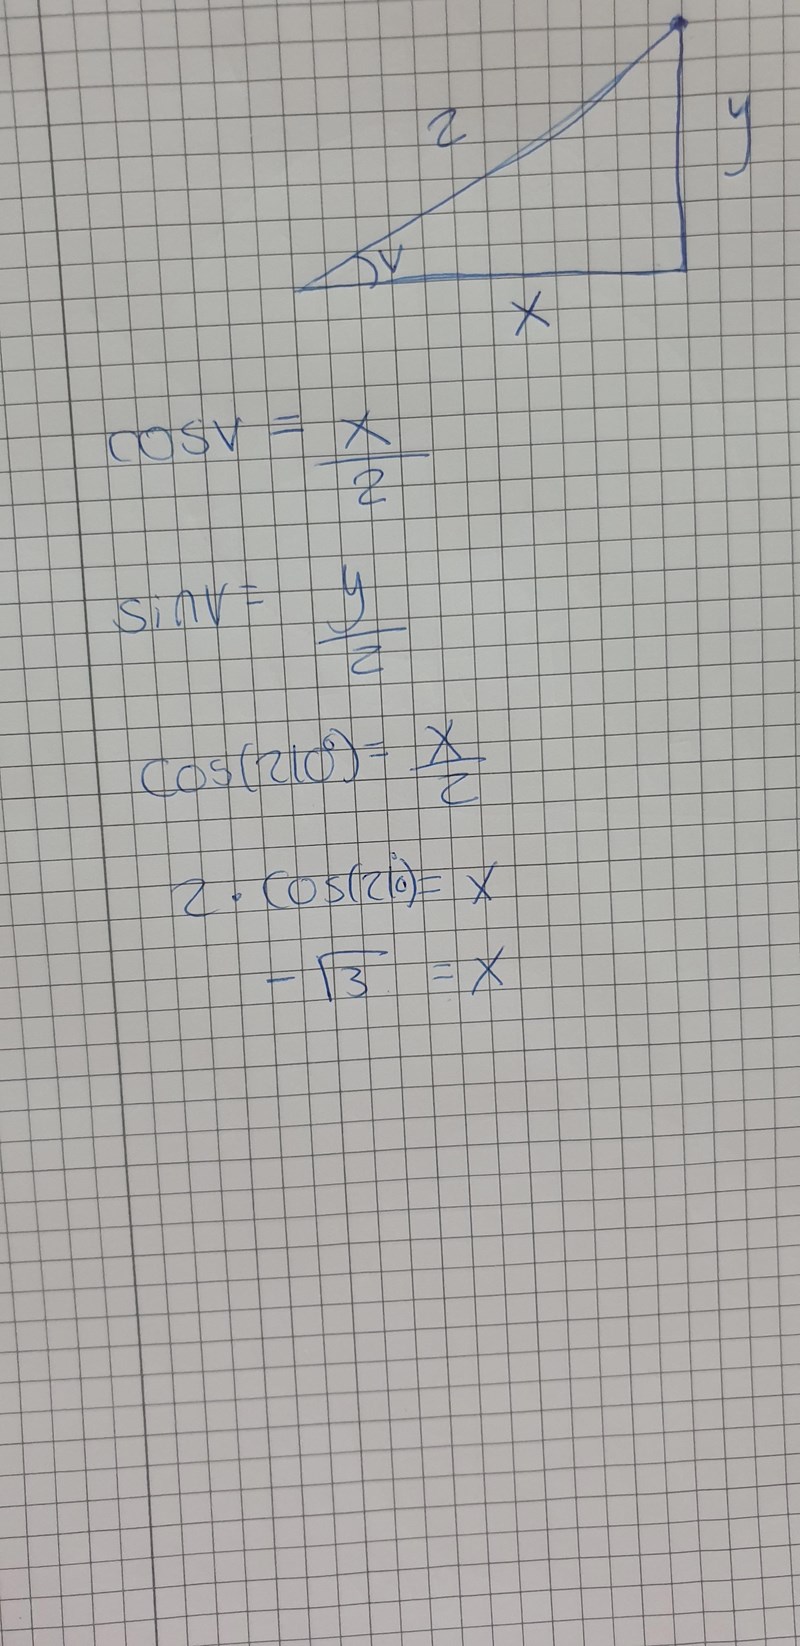 2
y
v
x
cosv = x/2
sinv = y/2
cos(210°) = x/2
2 · cos(210°) = x
-√3 = x